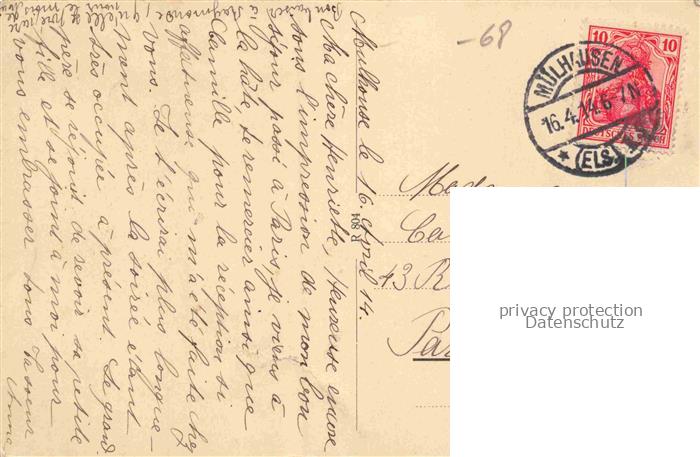 Mulhouse le 16 Avril 14.
Ma chère Henriette, Heureuse encore
sous l'impression de mon bon
séjour passé à Paris, je viens à
la hâte, te remercier ainsi que
Camille pour la réception si
affectueuse qui m'a été faite chez
vous. Je t'écrirai plus longue-
ment après la soirée étant
très occupée à présent. Le grand
père se réjouit de revoir sa petite
fille et se joint à moi pour
vous embrasser tous. Ta soeur
Anna
-68
10 10
MÜLHAUSEN
16.4.14. 6-7N
(ELS.)
R 804
43 R
privacy protection
Datenschutz